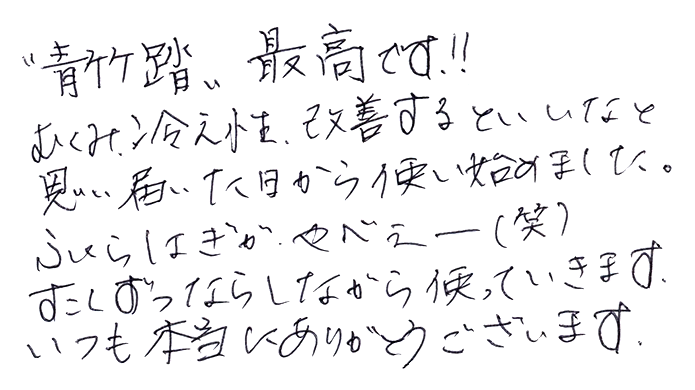 "青竹踏" 最高です.!!
むくみ、冷え性、改善するといいなと
思い届いた日から使い始めました。
ふくらはぎが、やべぇー(笑)
すこしずつならしながら使っていきます.
いつも本当にありがとうございます.